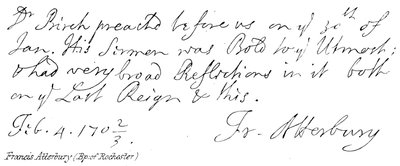 Dr Birch preach'd before us on ye 30th of
Jan. His Sermon was Bold to ye Utmost;
& had very broad Reflections in it both
on ye Last Reign & this.
Feb. 4. 170 2/3. Fr. Atterbury
Francis Atterbury (Bp. of Rochester)